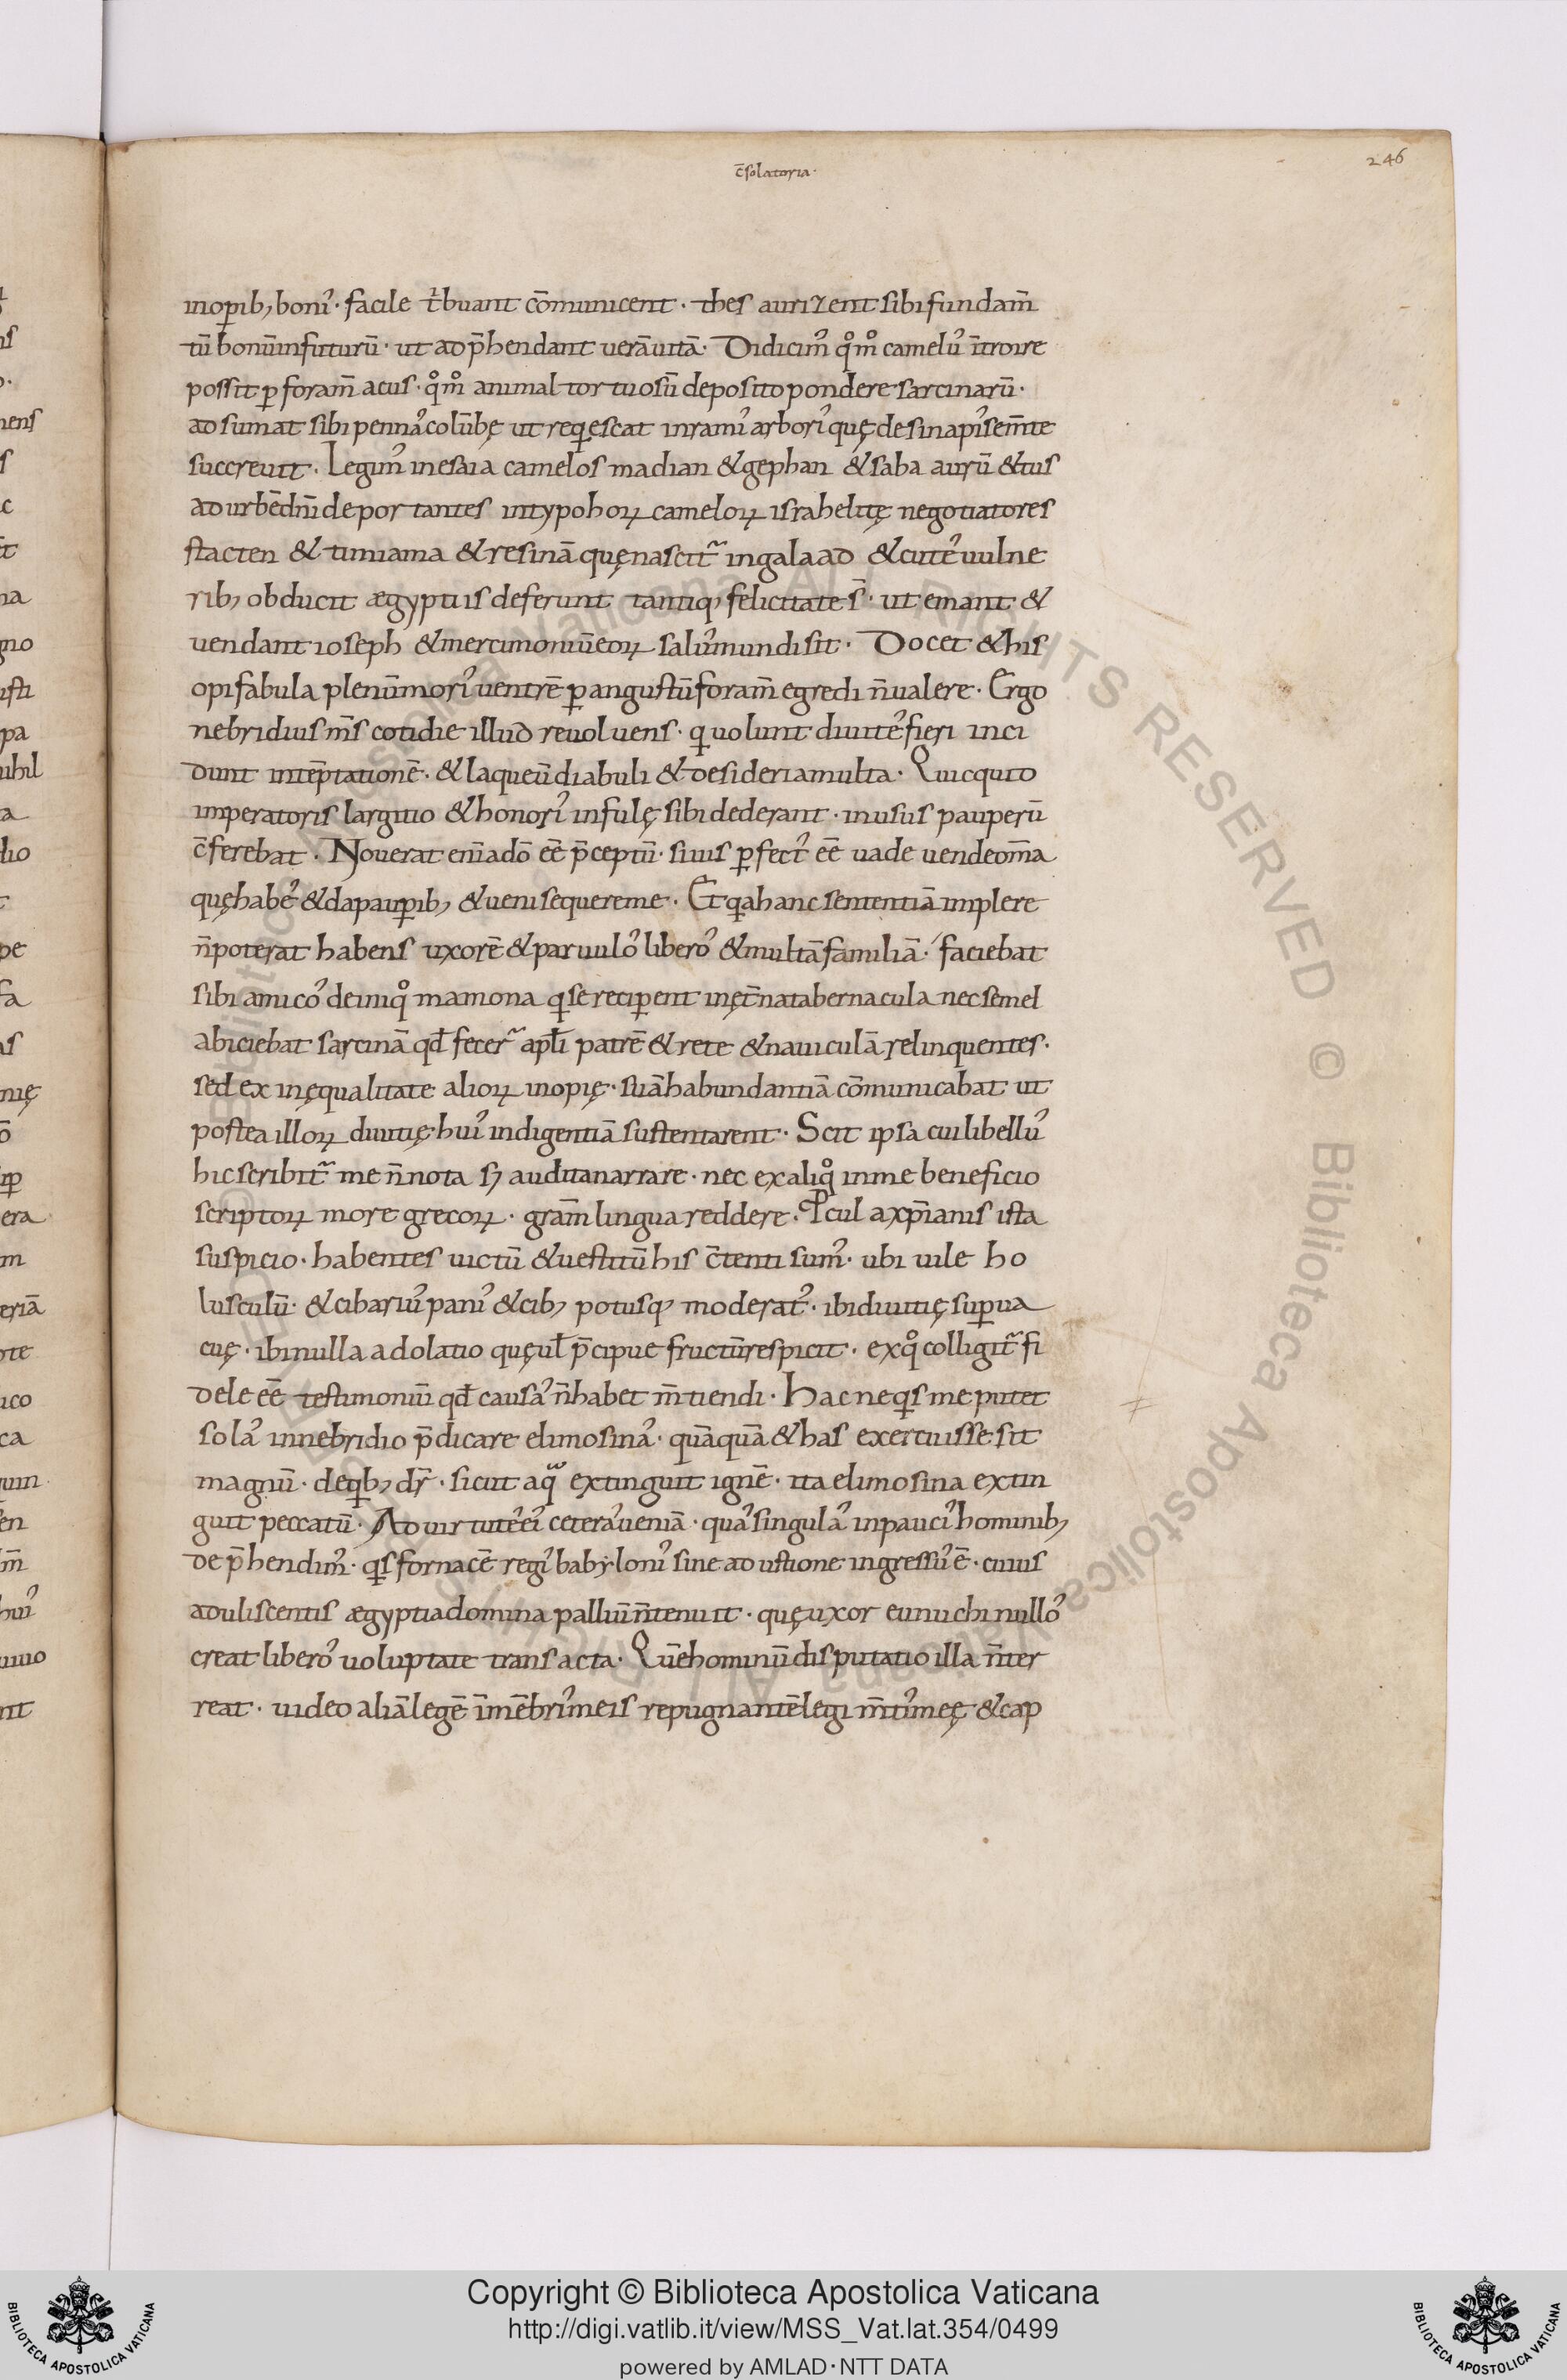 246
c̄solatoria·
inopib; boniˀ· facile tͥbuant cōmunicent· thes aurizent sibi fundam̄
tū bonū infuturū· ut ad p̄hendant uerā uitā· Didicimˀ qͦmͦ cameluˀ īntroire
possit ꝑ foram̄ acus· qͦmͦ animal tortuosū deposito pondere sarcinarū·
adsumat sibi pennaˀ colūbę ut reqͥescat inramiˀ arboriˀ quę desinapiˀ sem̄te
succreuit· Legimˀ inesaia camelos madian & gephan & saba aurū & tus
ad urbē dn̄i deportantes intypo hoꝝ cameloꝝ israhelitę negotiatores
stacten & timiama & resinā quę nascit᷑ ingalaad & cuteˀ uulne
rib; obducit ægyptiis deferunt tantiq; felicitate s̄· ut emant &
uendant ioseph & mercimoniū eoꝝ saluˀ mundi sit· Docet & his
opi fabula plenū moriˀ uentrē ꝑ angustū foram̄ egredi n̄ualere· Ergo
nebridius m̄s cotidie illud reuoluens· qͥ uolunt diuiteˀ fieri inci
dunt intēptationē· & laqueū diabuli & desideria multa· Quicquid
imperatoris largitio & honoriˀ infulę sibi dederant· inusus pauperū
c̄ferebat· Nouerat enī adō eē p̄ceptū· siuis ꝑfectˀ eē uade uende om̄a
quę habeˀ & da paupib; & ueni sequere me· Et qͥa hanc sententiā implere
n̄ poterat habens uxorē & paruuloˀ liberoˀ & multā familiā· faciebat
sibi amicoˀ deiniqͦ mamona qͥ se reciꝑent inęt̄na tabernacula nec semel
abiciebat sarcinā qd̄ fecer᷑ apl̄i patrē & rete & nauiculā relinquentes·
sed ex inęqualitate alioꝝ inopię· suā habundantiā cōmunicabat ut
postea illoꝝ diuitię huiˀ indigentiā sustentarent· Scit ipsa cui libelluˀ
hic scribit᷑ me n̄ nota sꝫ audita narrare· nec ex aliqͦ inme beneficio
scriptoꝝ more grecoꝝ· gram̄ lingua reddere· Ꝓcul a xp̄ianis ista
suspicio· habentes uictū & uestitū his c̄tenti sumˀ· ubi uile ho
lusculū· & cibariuˀ paniˀ & cib; potusq; moderatˀ· ibi diuitię suꝑua
cuę· ibi nulla adolatio quę ul̄ p̄cipue fructū respicit· ex qͦ colligit᷑ fi
dele eē testimoniū qd̄ causaˀ n̄ habet m̄tiendi· Hac ne qͥs me putet
solaˀ innebridio p̄dicare elimosinaˀ· quāquā & has exercuisse sit
magnū· deqͥb; dr̄· sicut aqͣ extinguit ignē· ita elimosina extin
guit peccatū· Ad uirtuteˀ eiˀ ceteraˀ ueniā· quaˀ singulaˀ inpauciˀ hominib;
dep̄hendimˀ· qͥs fornacē regiˀ babyloniˀ sine adustione ingressuˀ ē· cuius
aduliscentis ægyptia domina palliū n̄ tenuit· quę uxor eunuchi nulloˀ
creat liberoˀ uoluptate transacta· Quē hominū disputatio illa n̄ ter
reat· uideo aliā legē īmēbriˀ meis repugnantē legi m̄tiˀ meę & cap
Copyright © Biblioteca Apostolica Vaticana
http://digi.vatlib.it/view/MSS_Vat.lat.354/0499
powered by AMLAD·NTT DATA